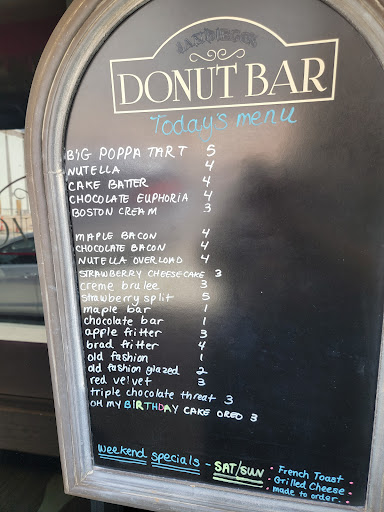 SAN DIEGO
DONUT BAR
Today's menu
BIG POPPA TART 5
NUTELLA 4
CAKE BATTER 4
CHOCOLATE EUPHORIA 4
BOSTON CREAM 3
MAPLE BACON 4
CHOCOLATE BACON 4
NUTELLA OVERLOAD 4
STRAWBERRY CHEESECAKE 3
creme brulee 3
strawberry split 5
maple bar 1
chocolate bar 1
apple fritter 3
brad fritter 4
old fashion 1
old fashion glazed 2
red velvet 3
triple chocolate threat 3
OH MY BIRTHDAY CAKE OREO 3
weekend specials - SAT/SUN • French Toast •
• Grilled Cheese •
• made to order •